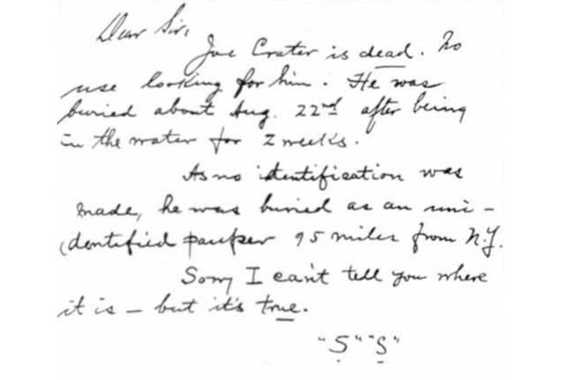 Dear Sir,
Joe Crater is dead. No
use looking for him. He was
buried about Aug. 22nd after being
in the water for 2 weeks.
As no identification was
made, he was buried as an uni-
dentified pauper 95 miles from N.Y.
Sorry I can't tell you where
it is — but it's true.
"S" "S"